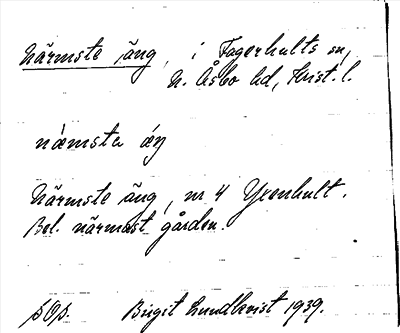 Närmste äng, i Fagerhults sn,
N. Åsbo hd, Krist. l.
næmsta æŋ
Närmste äng, nr 4 Yxenhult.
Bel. närmast gården.
Birgit Lundkvist 1939.